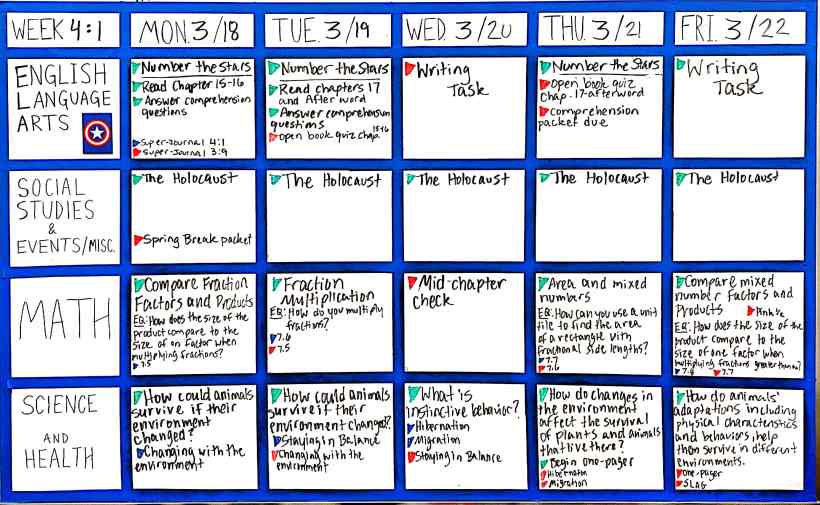 WEEK 4:1
MON. 3/18
TUE. 3/19
WED. 3/20
THU. 3/21
FRI. 3/22
ENGLISH
LANGUAGE
ARTS
Number the Stars
Read Chapter 15-16
Answer comprehension
questions
Super-Journal 4:1
Super-Journal 3:9
Number the Stars
Read chapters 17
and Afterword
Answer comprehension
questions
Open book quiz chap. 15-16
Writing
Task
Number the Stars
Open book quiz
Chap. 17-afterword
Comprehension
packet due
Writing
Task
SOCIAL
STUDIES
&
EVENTS/MISC.
The Holocaust
Spring Break packet
The Holocaust
The Holocaust
The Holocaust
The Holocaust
MATH
Compare Fraction
Factors and Products
EQ: How does the size of the
product compare to the
size of on factor when
multiplying fractions?
7.5
Fraction
Multiplication
EQ: How do you multiply
fractions?
7.6
7.5
Mid-chapter
check
Area and mixed
numbers
EQ: How can you use a unit
tile to find the area
of a rectangle with
fractional side lengths?
7.7
7.6
Compare mixed
number factors and
Products
EQ: How does the size of the
product compare to the
size of one factor when
multiplying fractions greater than one?
7.8
7.7
SCIENCE
AND
HEALTH
How could animals
survive if their
environment
changed?
Changing with the
environment
How could animals
survive if their
environment changed?
Staying in Balance
Changing with the
environment
What is
instinctive behavior?
Hibernation
Migration
Staying in Balance
How do changes in
the environment
affect the survival
of plants and animals
that live there?
Begin one-pager
Hibernation
Migration
How do animals'
adaptations including
physical characteristics
and behaviors, help
them survive in different
environments.
One-pager
SLAG